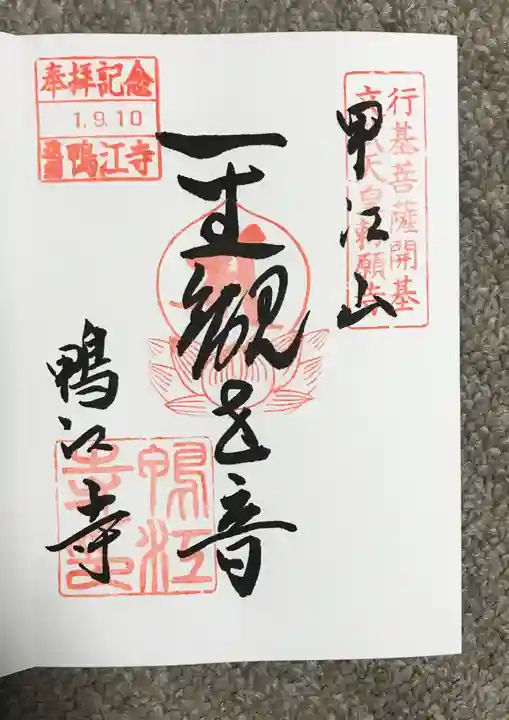 行基菩薩開基
天皇勅願寺
甲江山
観世音
奉拝記念
1.9.10
鴨江寺
鴨江寺
鴨江